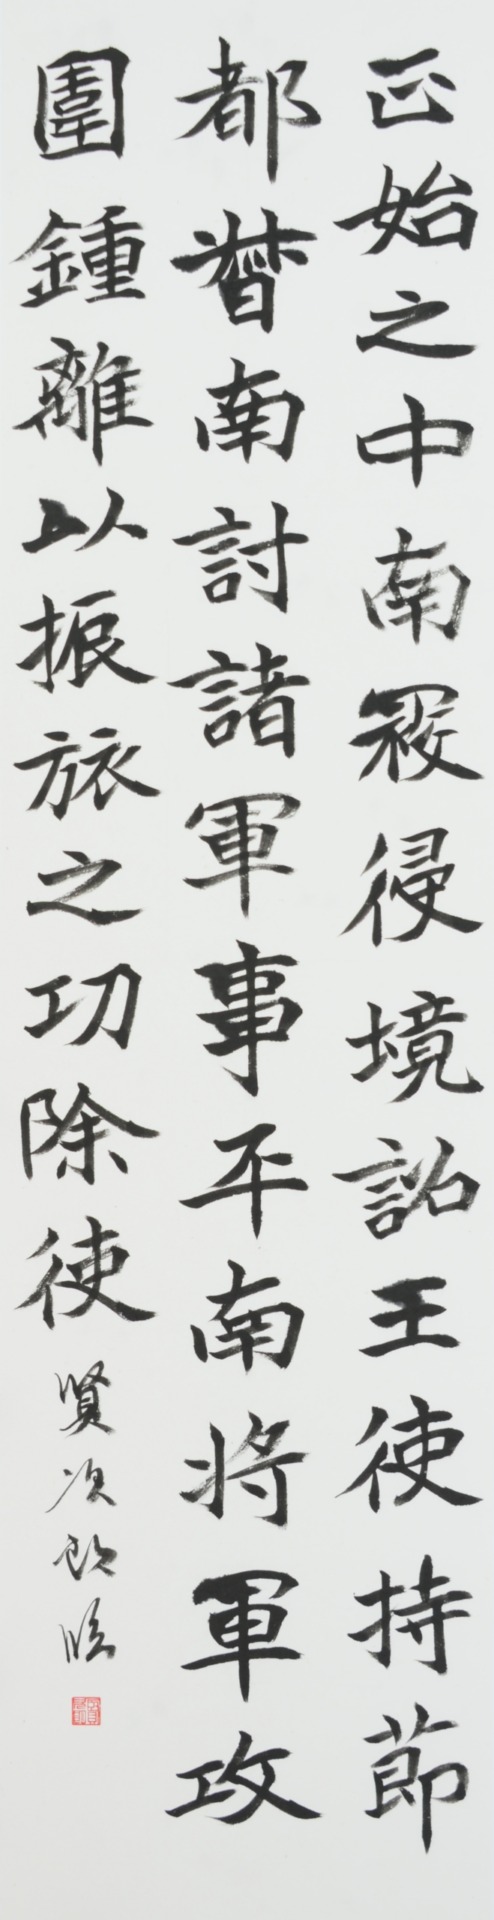 正始之中南寇侵境詔王使持節
都督南討諸軍事平南将軍攻
圍鍾離以振旅之功除使
賢次郎臨